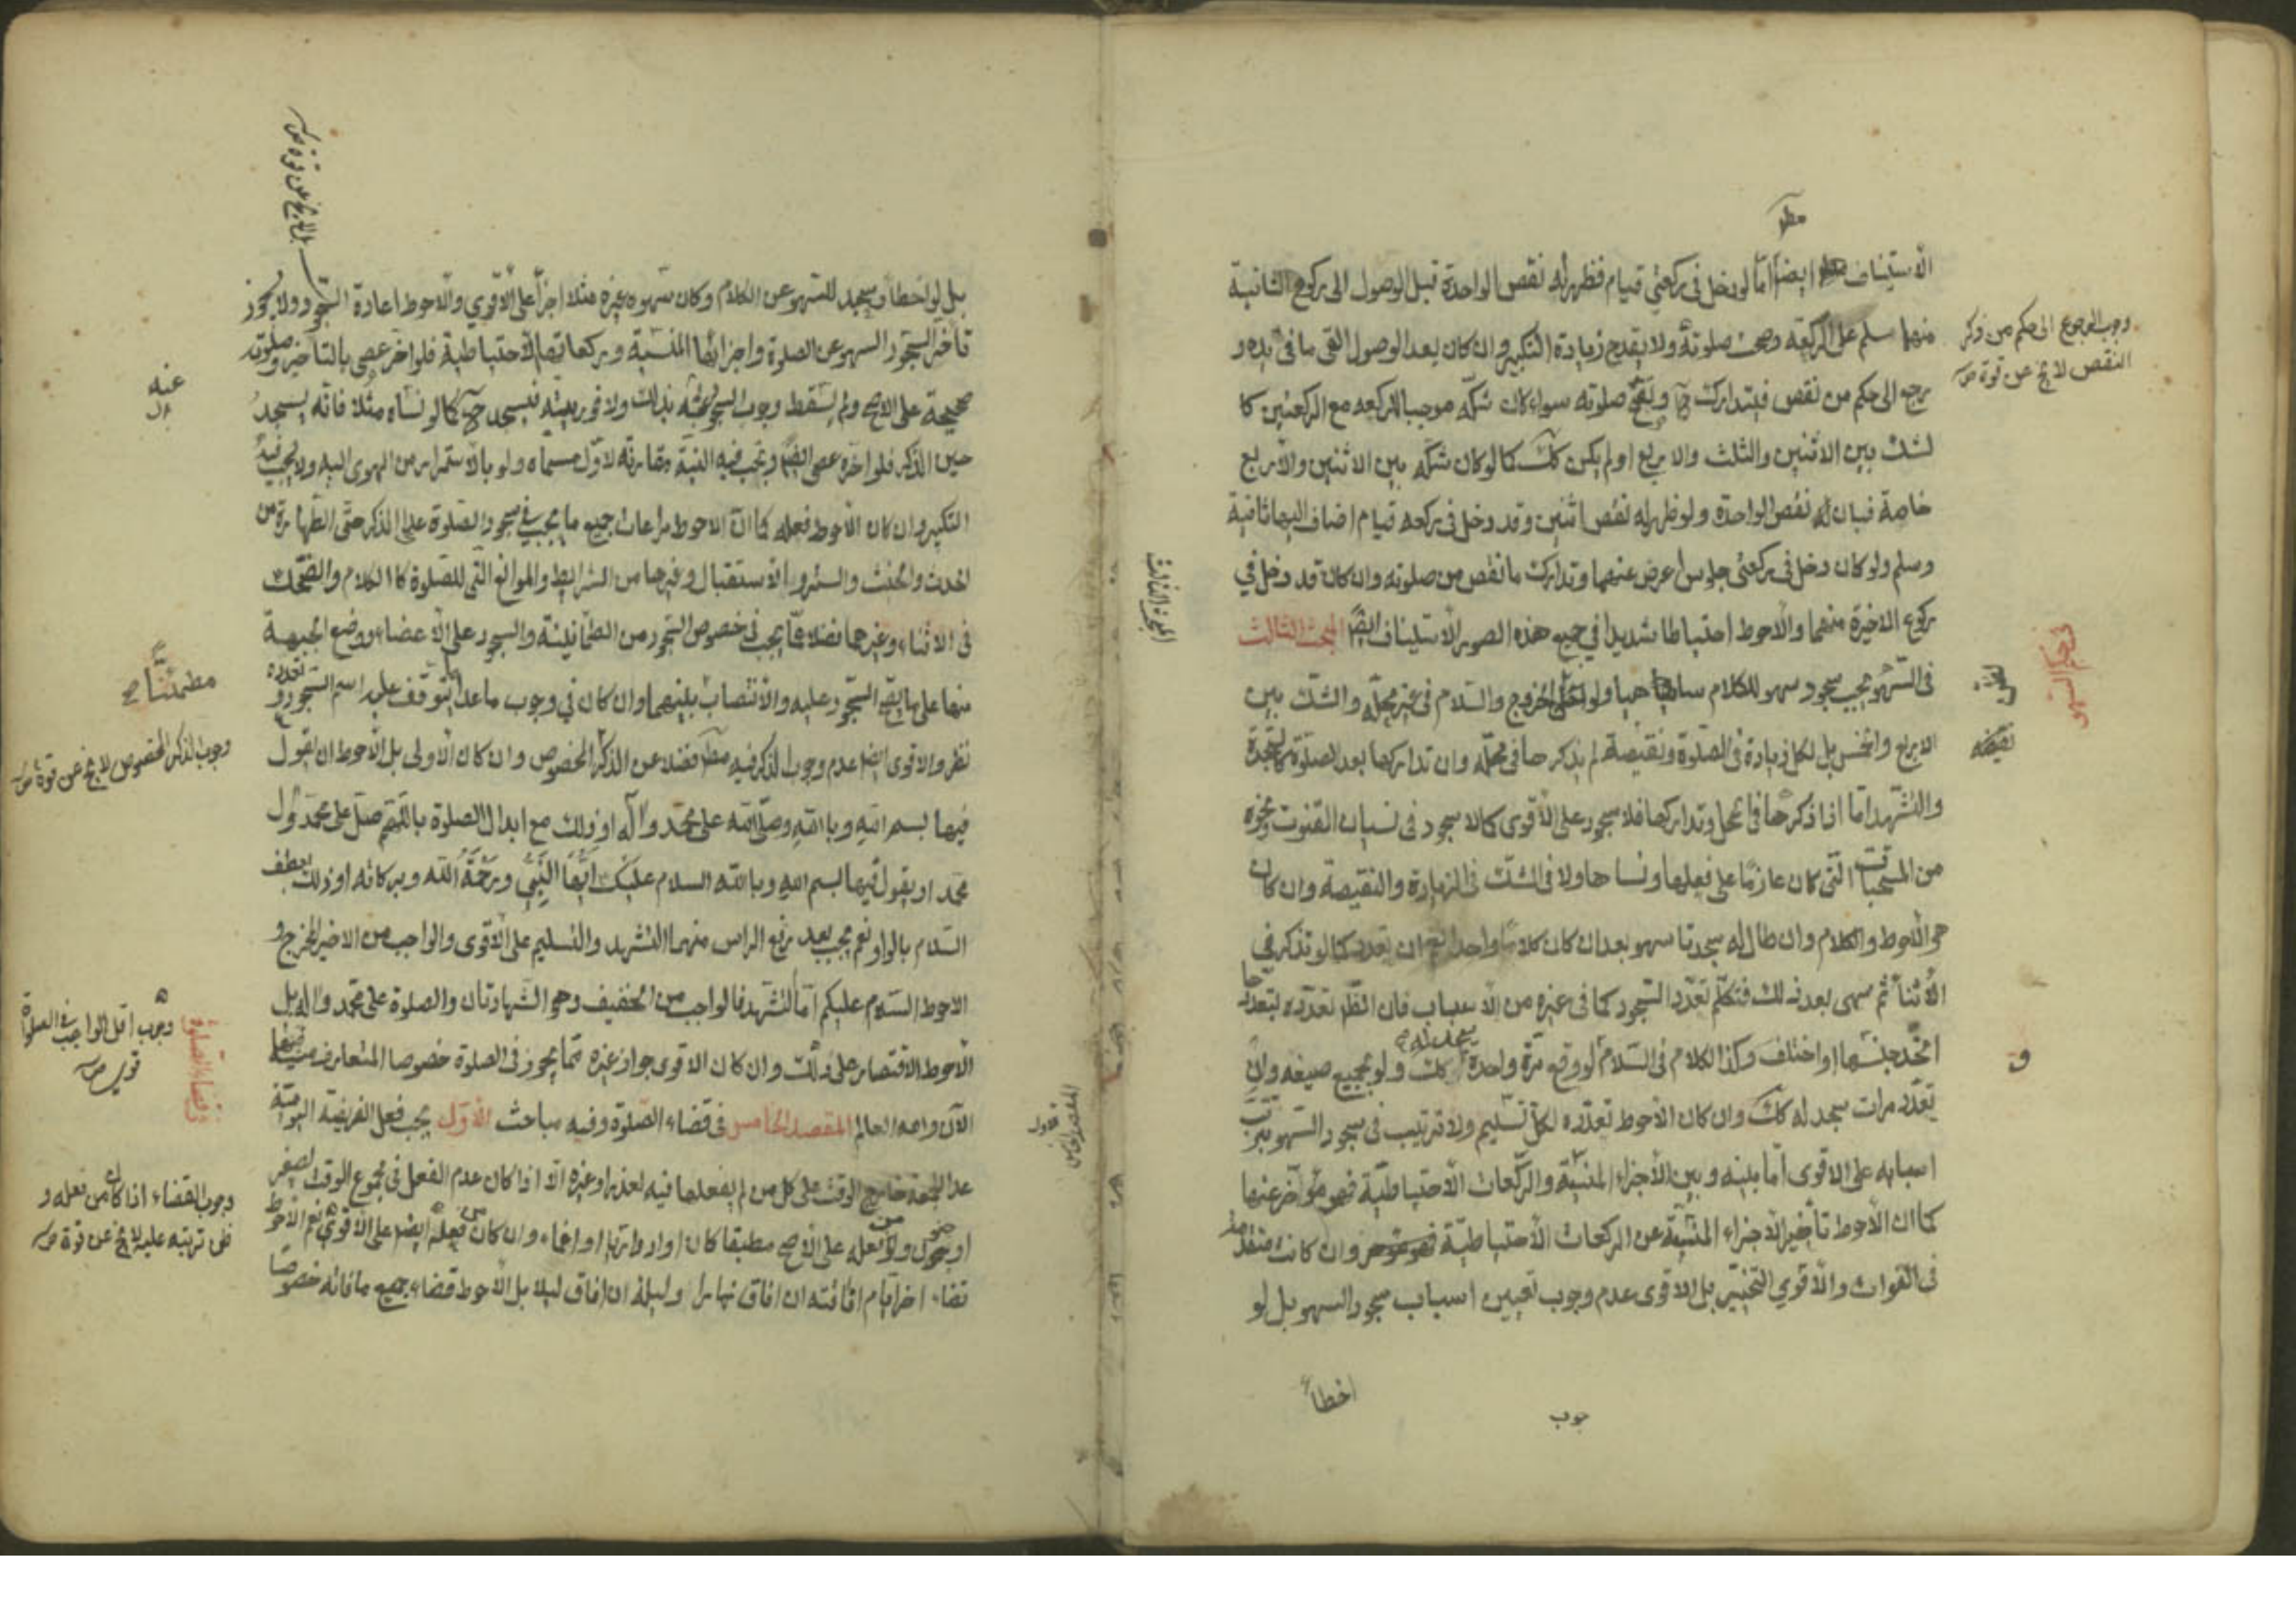 الاستيناف ايضا اما لو دخل في ركعتي قيام فظهر له نقص الواحدة قبل الوصول الى ركوع الثانية
منهما سلم على الركعة وصحت صلوته ولا يقدح زيادة التكبير وان كان بعد الوصول القى ما في يده و
رجع الى حكم من نقص فيتدارك ح وتصح صلوته سواء كان شكه موجبا لركعه مع الركعتين كا
لشك بين الاثنين والثلث والاربع او لم يكن كك كما لو كان شكه بين الاثنين والاربع
خاصة فبان له نقص الواحدة ولو ظهر له نقص اثنين وقد دخل في ركعه قيام اضاف اليها ثانية
وسلم ولو كان دخل في ركعتي جلوس اعرض عنهما وتدارك ما نقص من صلوته وان كان قد دخل في
ركوع الاخيرة منهما والاحوط احتياطا شديدا في جميع هذه الصور الاستيناف ايضا المبحث الثالث
في السهو يجب سجود سهو للكلام ساهيا ولو لظن الخروج والسلام في غير محله والشك بين
الاربع والخمس بل لكل زيادة في الصلوة ونقيصة لم يذكرها في محله وان تداركها بعد الصلوة كالسجدة
والتشهد اما اذا ذكرها في المحل وتداركها فلا سجود على الاقوى كالا سجود في نسيان القنوت ونحوه
من المستحبات التي كان عازما على فعلها ونساها ولا في الشك في الزيادة والنقيصة وان كان
هو الاحوط والكلام وان طال له سجدتا سهو بعد ان كان كلاما واحدا نعم ان تعدد كما لو تذكر في
الاثناء ثم سهى بعد ذلك فتكلم تعدد السجود كما في غيره من الاسباب فان الظ تعدده لتعددها
اتحد جنسها او اختلف وكذا الكلام في السلام لو وقع مرة واحدة كك ولو بجميع صيغه وان
تعدد مرات سجد له كك وان كان الاحوط تعدده لكل تسليم ولا ترتيب في سجود السهو بترتب
اسبابه على الاقوى اما بينه وبين الاجزاء المنسية والركعات الاحتياطية فهو مؤخر عنها
كما ان الاحوط تأخير الاجزاء المنسية عن الركعات الاحتياطية وان كانت متقدمة
في الفوات والاقوى التخيير بل الاقوى عدم وجوب تعيين اسباب سجود السهو بل لو
اخطأ
وجوب الرجوع الى حكم من ذكر
النقص لا يخ عن قوة
نقيضه
بل لو اخطأ وسجد للسهو عن الكلام وكان سهوه غيره مثلا اجزأ على الاقوى والاحوط اعادة السجود ولا يجوز
تأخير السجود السهو عن الصلوة واجزائها المنسية وركعاتها الاحتياطية فلو اخر عصى بالتأخير وصلوته
صحيحة على الاصح ولم يسقط وجوب السجود عنه بذلك ولا فوريته فيسجد ح كما لو نساه مثلا فانه يسجد
حين الذكر فلو اخره عصى ايضا ويجب فيه النية مقارنة لاول مسماه ولو بالاستمرار من الهوى اليه ولا يجب فيه
التكبير وان كان الاحوط فعله كما ان الاحوط مراعات جميع ما يجب في سجود الصلوة عدا الذكر حتى الطهارة من
الحدث والخبث والستر والاستقبال وغيرها من الشرايط والموانع التي للصلوة كالكلام والضحك
في الاثناء وغيرهما فضلا عما يجب في خصوص السجود من الطمانينة والسجود على الاعضاء ووضع الجبهة
منها على ما يصح السجود عليه والانتصاب بينهما وان كان في وجوب ما عدا ما يتوقف عليه اسم السجود وتعدده
نظر والاقوى ايضا عدم وجوب الذكر فيه فضلا عن الذكر المخصوص وان كان الاولى بل الاحوط ان يقول
فيها بسم الله وبالله وصلى الله على محمد وآله او ذلك مع ابدال الصلوة باللهم صل على محمد وآل
محمد او يقول فيها بسم الله وبالله السلام عليك ايها النبي ورحمة الله وبركاته او ذلك بعطف
السلام بالواو نعم يجب بعد رفع الراس منهما التشهد والتسليم على الاقوى والواجب من الاخير المخرج و
الاحوط السلام عليكم اما التشهد فالواجب من الخفيف وهو الشهادتان والصلوة على محمد وآله بل
الاحوط الاقتصار على ذلك وان كان الاقوى جواز غيره مما يجوز في الصلوة خصوصا المتعارف منه
الآن والله العالم المقصد الخامس في قضاء الصلوة وفيه مباحث الاول يجب فعل الفريضة اليومية
عدا الجمعة خارج الوقت على كل من لم يفعلها فيه لعذر او غيره الا اذا كان عدم الفعل في مجموع الوقت لصغر
او جنون ولا من فعله على الاصح مطبقا كان او ادواريا او اغماء وان كان من فعله ايضا على الاقوى نعم الاحوط
قضاء اخر ايام افاقته ان افاق نهارا وليلة ان افاق ليلا بل الاحوط قضاء جميع ما فاته خصوصا
عنه
مطمئنا صح
وجوب الذكر المخصوص لا يخ عن قوة
وجوب اقل الواجب في الصلوة
قوي
في قضاء الصلوة
وجوب القضاء اذا كان من فعله و
ظن ترتبه عليه لا يخ عن قوة